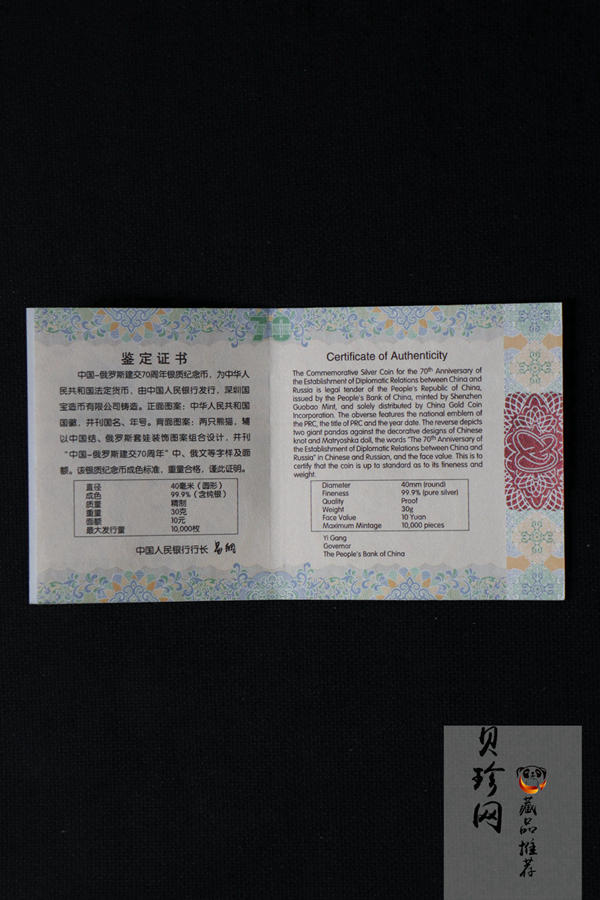 鉴定证书
中国-俄罗斯建交70周年银质纪念币，为中华人
民共和国法定货币，由中国人民银行发行，深圳国
宝造币有限公司铸造。正面图案：中华人民共和国
国徽，并刊国名、年号。背面图案：两只熊猫，辅
以中国结、俄罗斯套娃装饰图案组合设计，并刊
“中国-俄罗斯建交70周年”中、俄文等字样及面
额。该银质纪念币成色标准，重量合格，谨此证明。
直径 40毫米（圆形）
成色 99.9%（含纯银）
质量 精制
重量 30克
面额 10元
最大发行量 10,000枚
中国人民银行行长 易纲
Certificate of Authenticity
The Commemorative Silver Coin for the 70th Anniversary of
the Establishment of Diplomatic Relations between China and
Russia is legal tender of the People's Republic of China,
issued by the People's Bank of China, minted by Shenzhen
Guobao Mint, and solely distributed by China Gold Coin
Incorporation. The obverse features the national emblem of
the PRC, the title of PRC and the year date. The reverse depicts
two giant pandas against the decorative designs of Chinese
knot and Matryoshka doll, the words "The 70th Anniversary of
the Establishment of Diplomatic Relations between China and
Russia" in Chinese and Russian, and the face value. This is to
certify that the coin is up to standard as to its fineness and
weight.
Diameter 40mm (round)
Fineness 99.9% (pure silver)
Quality Proof
Weight 30g
Face Value 10 Yuan
Maximum Mintage 10,000 pieces
Yi Gang
Governor
The People's Bank of China
贝珍网
藏品推荐